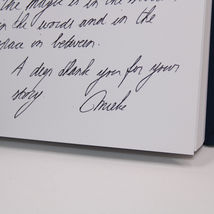 the magic is in the
in the words and in the
space in between.
A deep thank you for your
story Mieke